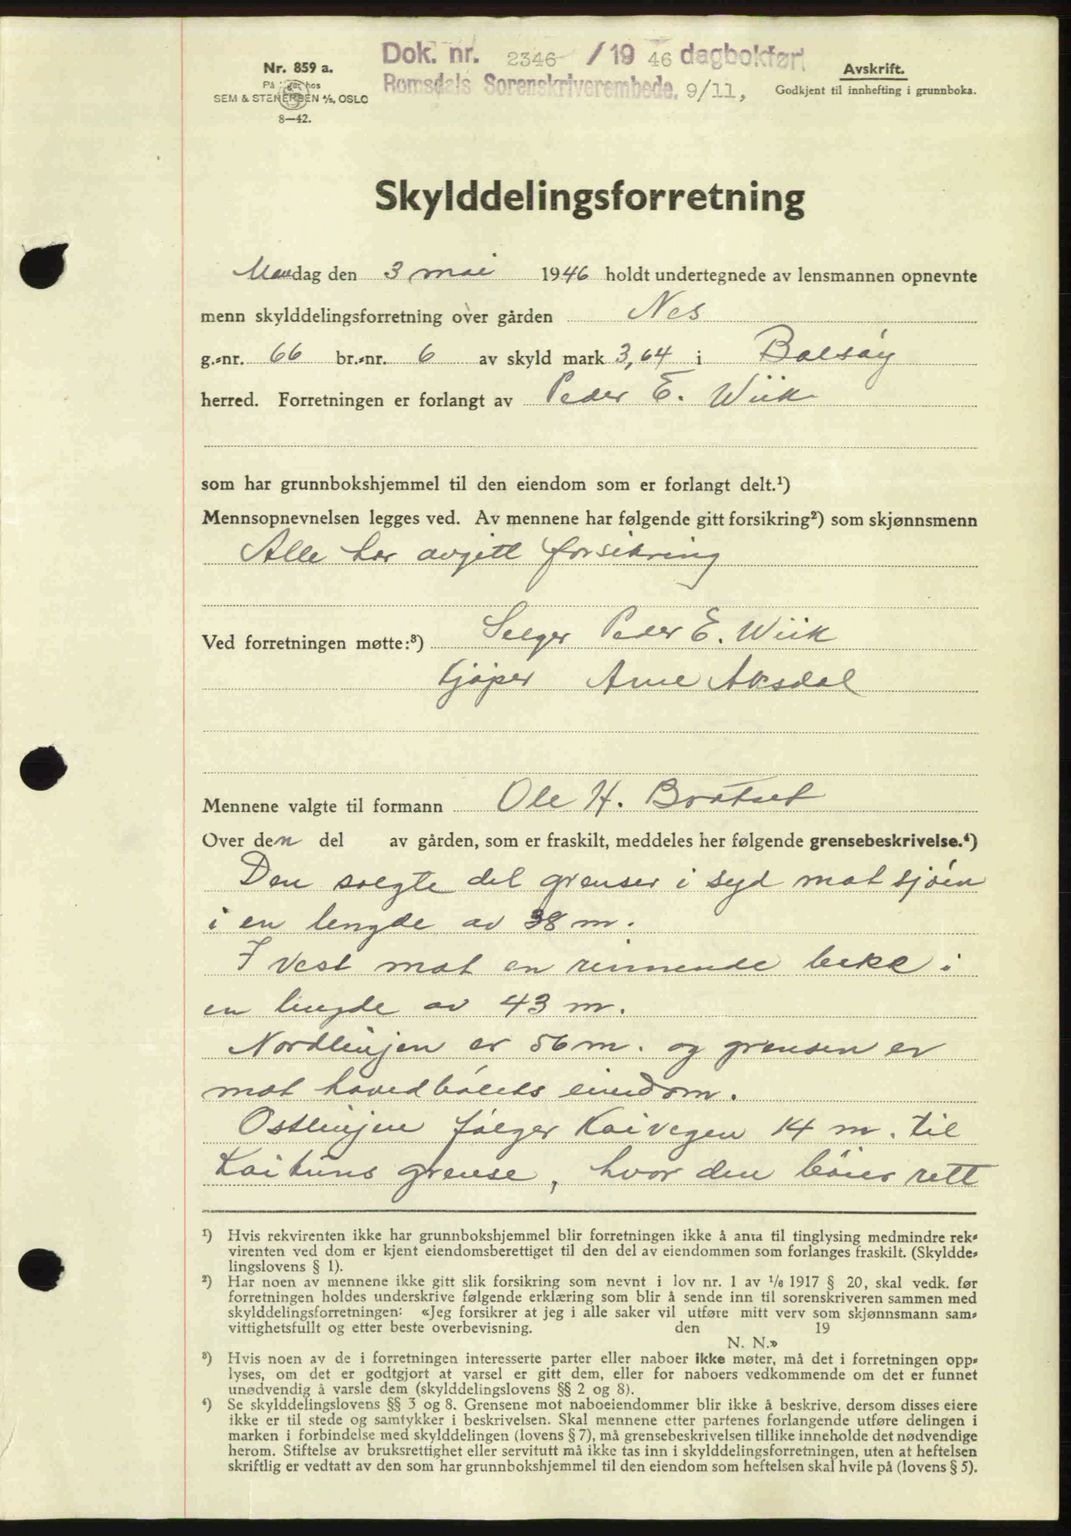 Dok. nr. 2346 / 19 46 dagbokført
Romsdals Sorenskriverembede. 9/11,
Nr. 859 a.
På hos
SEM & STENERSEN A/S, OSLO
8—42.
Avskrift.
Godkjent til innhefting i grunnboka.
Skylddelingsforretning
Mandag den 3 mai 1946 holdt undertegnede av lensmannen opnevnte
menn skylddelingsforretning over gården Nes
g.-nr. 66 br.-nr. 6 av skyld mark 3,64 i Bolsøy
herred. Forretningen er forlangt av Peder E. Wiik
som har grunnbokshjemmel til den eiendom som er forlangt delt.¹)
Mennsopnevnelsen legges ved. Av mennene har følgende gitt forsikring²) som skjønnsmenn
Alle har avgitt forsikring
Ved forretningen møtte:³) Selger Peder E. Wiik
Kjøper Arne Aksdal
Mennene valgte til formann Ole H. Bratset
Over den del av gården, som er fraskilt, meddeles her følgende grensebeskrivelse.⁴)
Den solgte del grenser i syd mot sjøen
i en lengde av 38 m.
I vest mot en rinnende bekk i
en lengde av 43 m.
Nordlinjen er 56 m. og grensen er
mot hovedbølets eiendom.
Ostlinjen følger Kaivegen 14 m. til
Kaituns grense, hvor den bøier rett
¹) Hvis rekvirenten ikke har grunnbokshjemmel blir forretningen ikke å anta til tinglysing medmindre rek-
virenten ved dom er kjent eiendomsberettiget til den del av eiendommen som forlanges fraskilt. (Skyldde-
lingslovens § 1).
²) Har noen av mennene ikke gitt slik forsikring som nevnt i lov nr. 1 av 1/6 1917 § 20, skal vedk. før
forretningen holdes underskrive følgende erklæring som blir å sende inn til sorenskriveren sammen med
skylddelingsforretningen: «Jeg forsikrer at jeg i alle saker vil utføre mitt verv som skjønnsmann sam-
vittighetsfullt og etter beste overbevisning. den 19
N. N.»
³) Hvis noen av de i forretningen interesserte parter eller naboer ikke møter, må det i forretningen opp-
lyses, om det er godtgjort at varsel er gitt dem, eller for naboers vedkommende om det er funnet
unødvendig å varsle dem (skylddelingslovens §§ 2 og 8).
⁴) Se skylddelingslovens §§ 3 og 8. Grensene mot naboeiendommer blir ikke å beskrive, dersom disses eiere
ikke er til stede og samtykker i beskrivelsen. Skal mennene etter partenes forlangende utføre delingen i
marken i forbindelse med skylddelingen (lovens § 7), må grensebeskrivelsen tillike inneholde det nødvendige
herom. Stiftelse av bruksrettighet eller servitutt må ikke tas inn i skylddelingsforretningen, uten at heftelsen
skriftlig er vedtatt av den som har grunnbokshjemmel til den eiendom som heftelsen skal hvile på (lovens § 5).